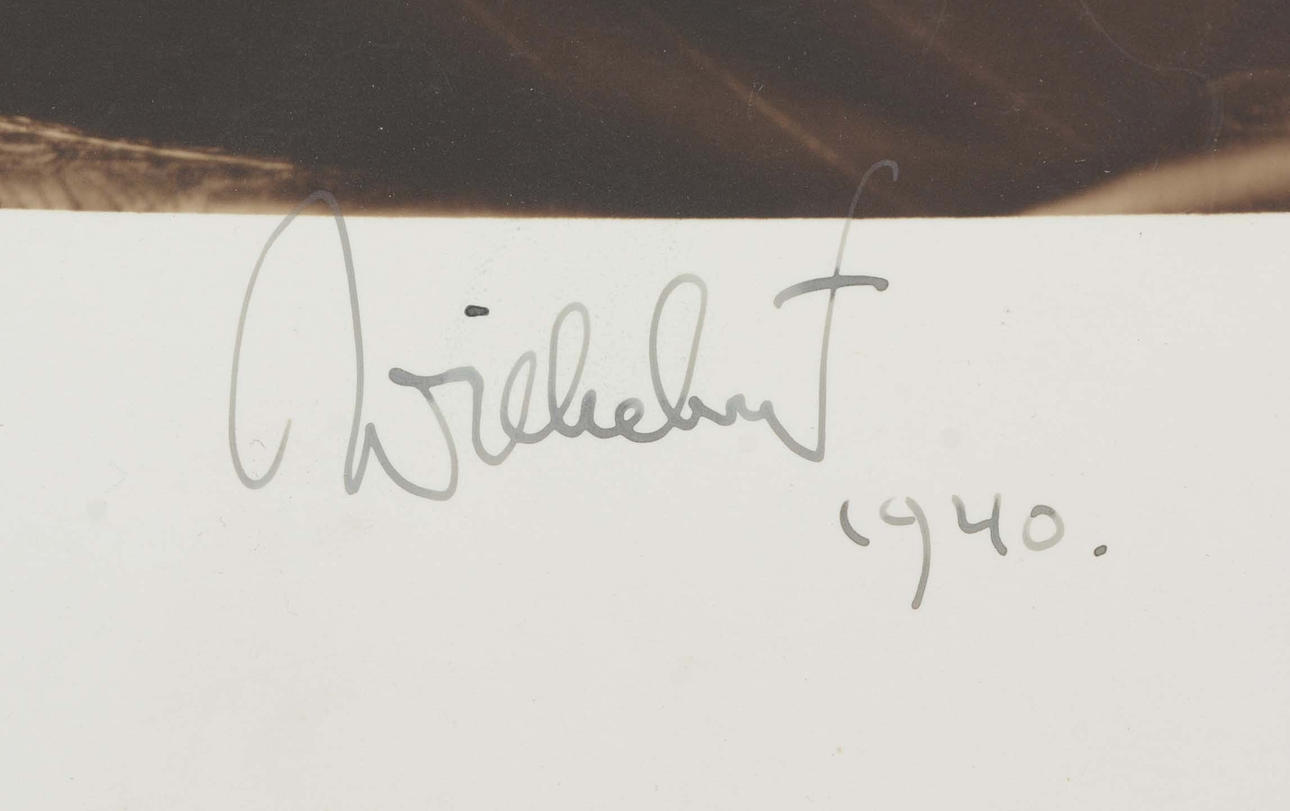 Wilhelm
1940.